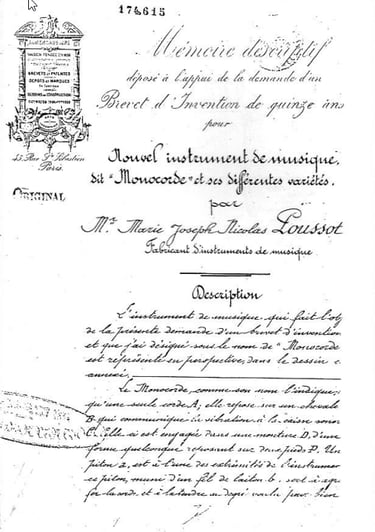 174615
BREVETS ET PATENTES
DÉPÔTS DE MARQUES
43, Rue St Sébastien
Paris.
ORIGINAL
Mémoire descriptif
déposé à l'appui de la demande d'un
Brevet d'Invention de quinze ans
pour
Nouvel instrument de musique,
dit "Monocorde" et ses différentes variétés.
par
Mr. Marie Joseph Nicolas Poussot
Fabricant d'instruments de musique
Description
L'instrument de musique qui fait l'obj
de la présente demande d'un brevet d'invention
et que j'ai désigné sous le nom de "Monocorde
est représenté en perspective, dans le dessin c
annexé.
Le Monocorde, comme son nom l'indique,
qu'une seule corde A; elle repose sur un chevale
B qui communique la vibration à la caisse sonor
C. Celle-ci est engagée dans une monture D, d'une
forme quelconque reposant sur deux pieds P. Un
piton a, est à l'une des extrémités de l'instrumen
ce piton, muni d'un fil de laiton b, sert à agr
fer la corde et à la tendre au degré voulu par